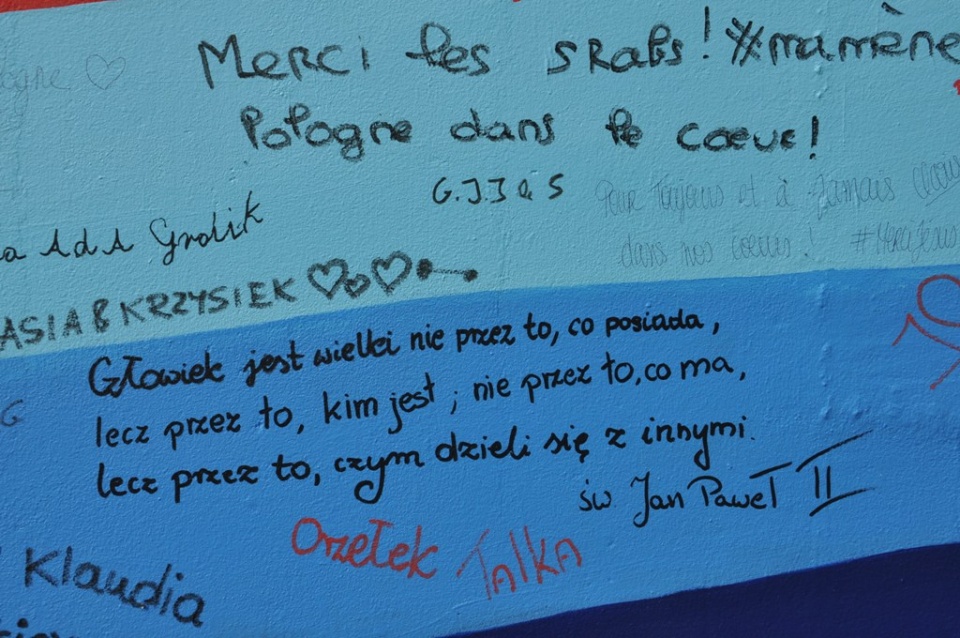 Merci les sRabs! #mamène
Pologne dans le coeur!
G.J.J & S
Pour Toujours et à Jamais
dans nos coeurs! #
a AdA Grolik
ASIA & KRZYSIEK
Człowiek jest wielki nie przez to, co posiada,
lecz przez to, kim jest; nie przez to, co ma,
lecz przez to, czym dzieli się z innymi.
św. Jan Paweł II
Orzełek Talka
Klaudia